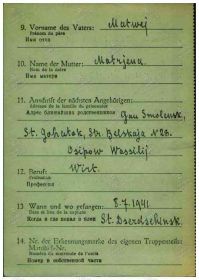 9. Vorname des Vaters: Matwej
Prénom du père
Имя отца
10. Name der Mutter: Matrjena
Nom de la mère
Имя матери
11. Anschrift der nächsten Angehörigen:
Adresse de la famille du prisonnier
Адрес ближайшего родственника Gau Smolensk,
St. Str. Belskaja № 26.
Osipow Wassilij
12. Beruf: Wirt.
Profession
Профессия
13 Wann und wo gefangen: 8.7.1941
Date et lieu de la capture
Когда и где попал в плен St. Dserdschinsk.
14. Nr. der Erkennungsmarke des eigenen Truppenteils:
Numéro du matricule de l'unité
Номер в собственной части